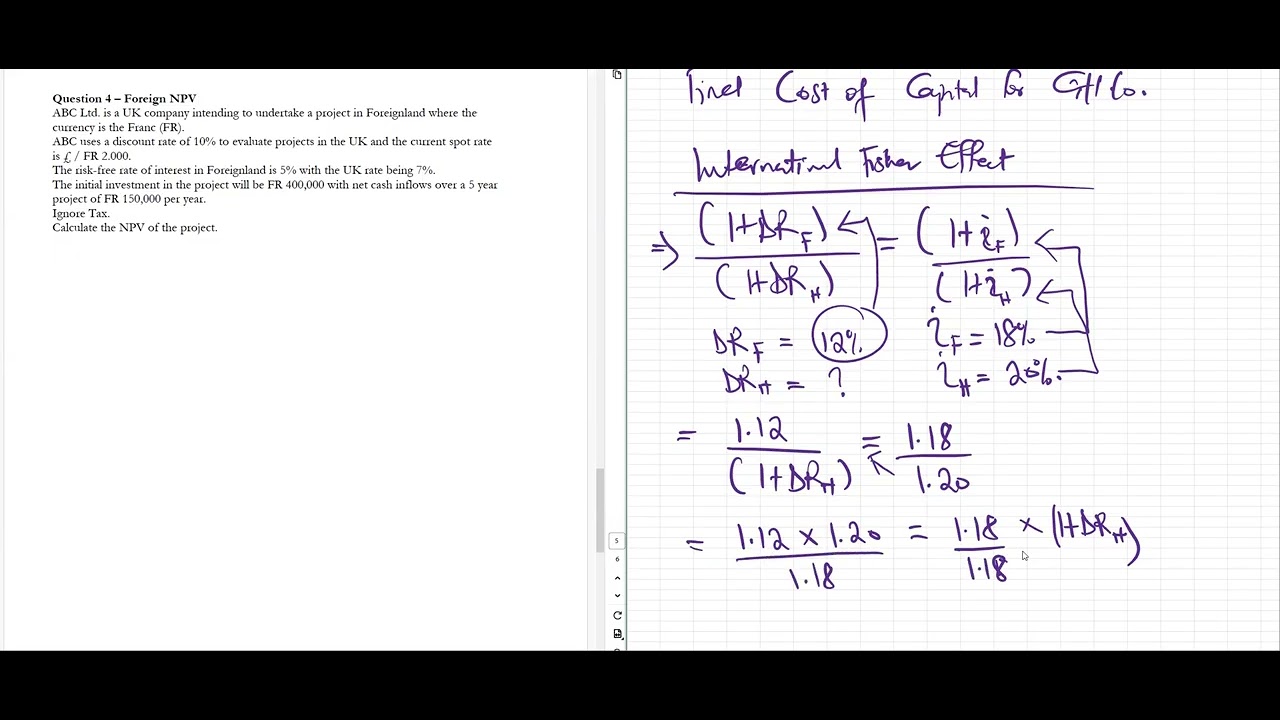 Question 4 – Foreign NPV
ABC Ltd. is a UK company intending to undertake a project in Foreignland where the
currency is the Franc (FR).
ABC uses a discount rate of 10% to evaluate projects in the UK and the current spot rate
is £ / FR 2.000.
The risk-free rate of interest in Foreignland is 5% with the UK rate being 7%.
The initial investment in the project will be FR 400,000 with net cash inflows over a 5 year
project of FR 150,000 per year.
Ignore Tax.
Calculate the NPV of the project.
5
6
Cost of Capital for GHI Co.
Internatinl Fisher Effect
=> (1+DR_F) / (1+DR_H) = (1+i_F) / (1+i_H)
DR_F = 12% i_F = 18%
DR_H = ? i_H = 20%
= 1.12 / (1+DR_H) = 1.18 / 1.20
= 1.12 x 1.20 / 1.18 = 1.18 / 1.18 x (1+DR_H)